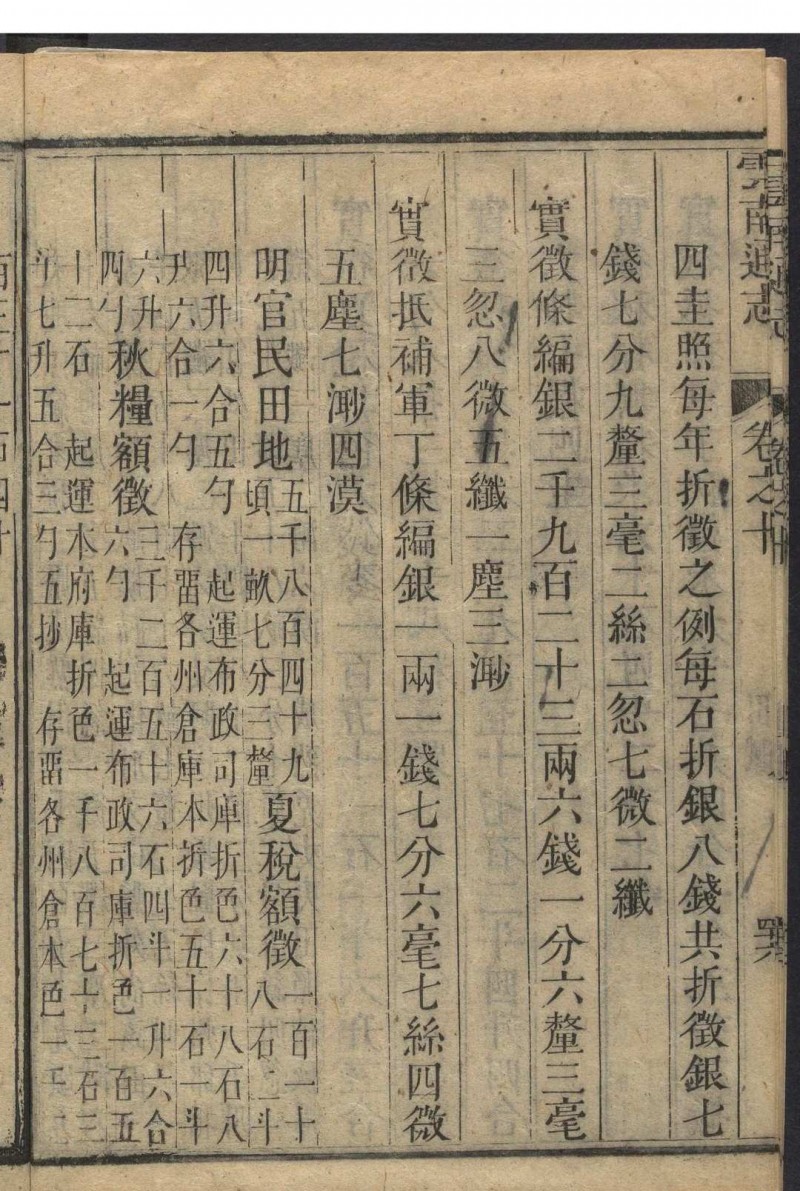 雲南通志 卷之十
四圭照每年折徵之例每石折銀八錢共折徵銀七
錢七分九釐三毫二絲二忽七微二纖
實徵條編銀二千九百二十三兩六錢一分六釐三毫
三忽八微五纖一塵三渺
實徵抵補軍丁條編銀一兩一錢七分六毫七絲四微
五塵七渺四漠
明官民田地五千八百四十九頃一畝七分三釐夏稅額徵一百一十八石二斗
四升六合五勺 起運布政司庫折色六十八石八
升六合一勺 存畱各州倉庫本折色五十石一斗
六升四勺秋糧額徵三千二百五十六石四斗一升六合六勺 起運布政司庫折色一百五
十二石 起運本府庫折色一千八百七十三石三
斗七升五合三勺五抄 存畱各州倉本色一千二